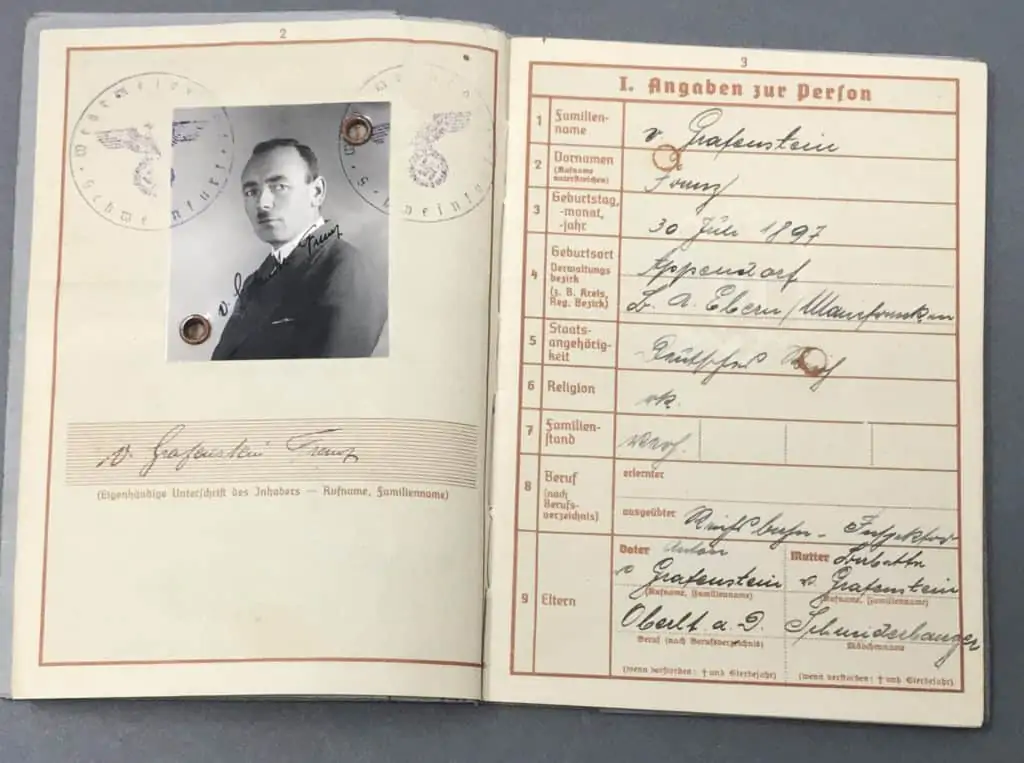 2
v. Grafenstein Franz
v. Grafenstein Franz
(Eigenhändige Unterschrift des Inhabers — Rufname, Familienname)
3
I. Angaben zur Person
1 Familien-
name
v. Grafenstein
2 Vornamen
(Rufname
unterstreichen)
Franz
3 Geburtstag,
-monat,
-jahr
30 Juli 1897
4 Geburtsort
Verwaltungs
bezirk
(z. B. Kreis,
Reg. Bezirk)
Appendorf
B. A. Ebern / Mainfranken
5 Staats-
angehörig-
keit
Deutsches Reich
6 Religion
rk.
7 Familien-
stand
verh.
8 Beruf
(nach
Berufs-
verzeichnis)
erlernter
ausgeübter Reichsbahn - Inspektor
9 Eltern
Vater Anton
v Grafenstein
(Rufname, Familienname)
Oberlt. a. D.
Beruf (nach Berufsverzeichnis)
(wenn verstorben: † und Sterbejahr)
Mutter Babette
v. Grafenstein
(Rufname, Familienname)
Mädchenname
(wenn verstorben: † und Sterbejahr)